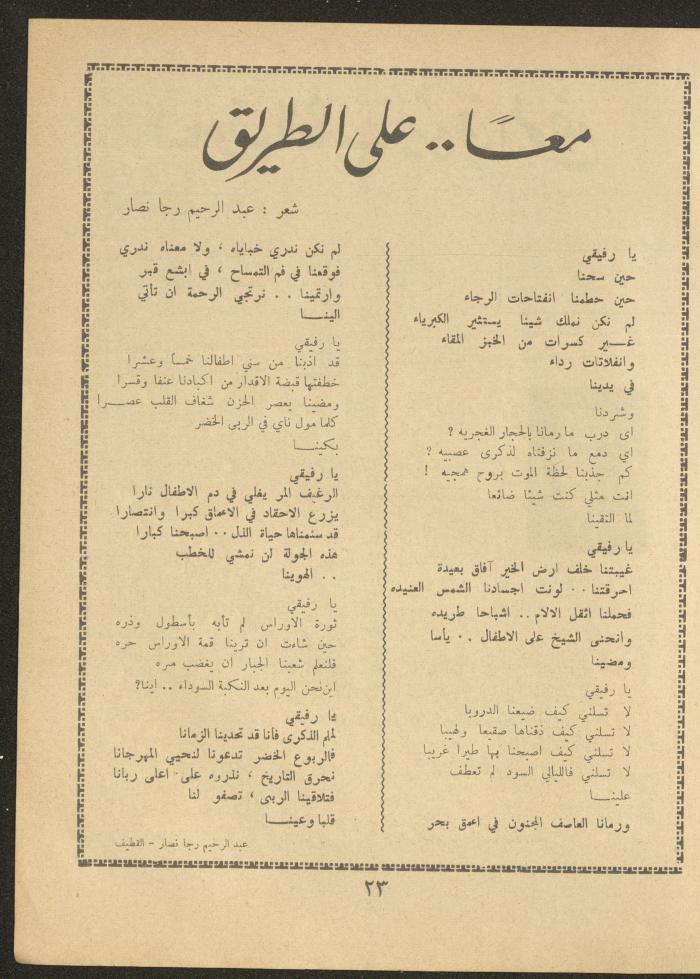 معـًـا.. على الطريق
شعر : عبد الرحيم رجا نصار
يا رفيقي
حين سحنا
حين حطمنا انفتاحات الرجاء
لم نكن نملك شيئا يستثير الكبرياء
غـــير كسرات من الخبز المقاء
وانفلاتات رداء
في يدينا
وشردنا
اى درب ما رمانا بالحجار الفجريه ؟
اي دمع ما نزفناه لذكرى عصبيه ؟
كم جذبنا لحظة الموت بروح همجيه !
انت مثلي كنت شيئا ضائعا
لما التقينا
يا رفيقي
غيبتنا خلف ارض الخير آفاق بعيدة
احرقتنا .. لونت اجسادنا الشمس العنيده
فحملنا اثقل الالام .. اشباحا طريده
وانحنى الشيخ على الاطفال .. يأسا
ومضينا
يا رفيقي
لا تسلني كيف ضيعنا الدروبا
لا تسلني كيف ذقناها صقيعا ولهيبا
لا تسلني كيف اصبحنا بها طيرا غريبا
لا تسلني فالليالي السود لم تعطف
علينـــا
ورمانا العاصف المجنون في اعمق بحر
لم نكن ندري خباياه ، ولا معناه ندري
فوقعنا في فم التمساح ، في ابشع قبر
وارتمينا .. نرتجي الرحمة ان تأتي
الينـــا
يا رفيقي
قد اذبنا من سني اطفالنا خمسا وعشرا
خطفتها قبضة الاقدار من اكبادنا عنفا وقسرا
ومضينا يعصر الحزن شغاف القلب عصـــرا
كلما مول ناي في الربى الخضر
بكينـــا
يا رفيقي
الرغيف المر يغلي في دم الاطفال نارا
يزرع الاحقاد في الاعماق كبرا وانتصارا
قد سئمناها حياة الذل .. اصبحنا كبارا
هذه الجولة لن نمشي للخطب
.. الهوينا
يا رفيقي
ثورة الاوراس لم تأبه بأسطول وذره
حين شاءت ان ترينا قمة الاوراس حره
فلنعلم شعبنا الجبار ان يغضب مره
اين نحن اليوم بعد النكبة السوداء .. اينا؟
يا رفيقي
لملم الذكرى فأنا قد تحدينا الزمانا
فالربوع الخضر تدعونا لنحيي المهرجانا
نحرق التاريخ ، نذروه على اعلى ربانا
فتلاقينا الربى ، تصفو لنا
قلبا وعينـــا
عبد الرحيم رجا نصار - القطيف
٢٣